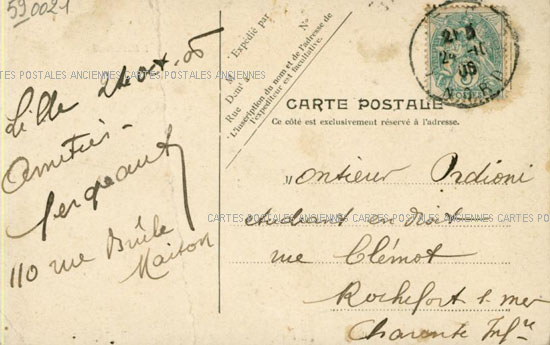 590021
Lille 24 Oct. 06
Amitiés
110 rue Brûle
Maison
Expédié par
M
Demt
Rue
N.
L'inscription du nom et de l'adresse de
l'expéditeur est facultative.
CARTE POSTALE
Ce côté est exclusivement réservé à l'adresse.
NORD
Monsieur Ordioni
étudiant en Droit
rue Clémot
Rochefort s. mer
Charente Infre
CARTES POSTALES ANCIENNES CARTES POSTALES ANCIENNES CARTES POSTALES ANCIENNES
CARTES POSTALES ANCIENNES CARTES POSTALES ANCIENNES CARTES POSTALES